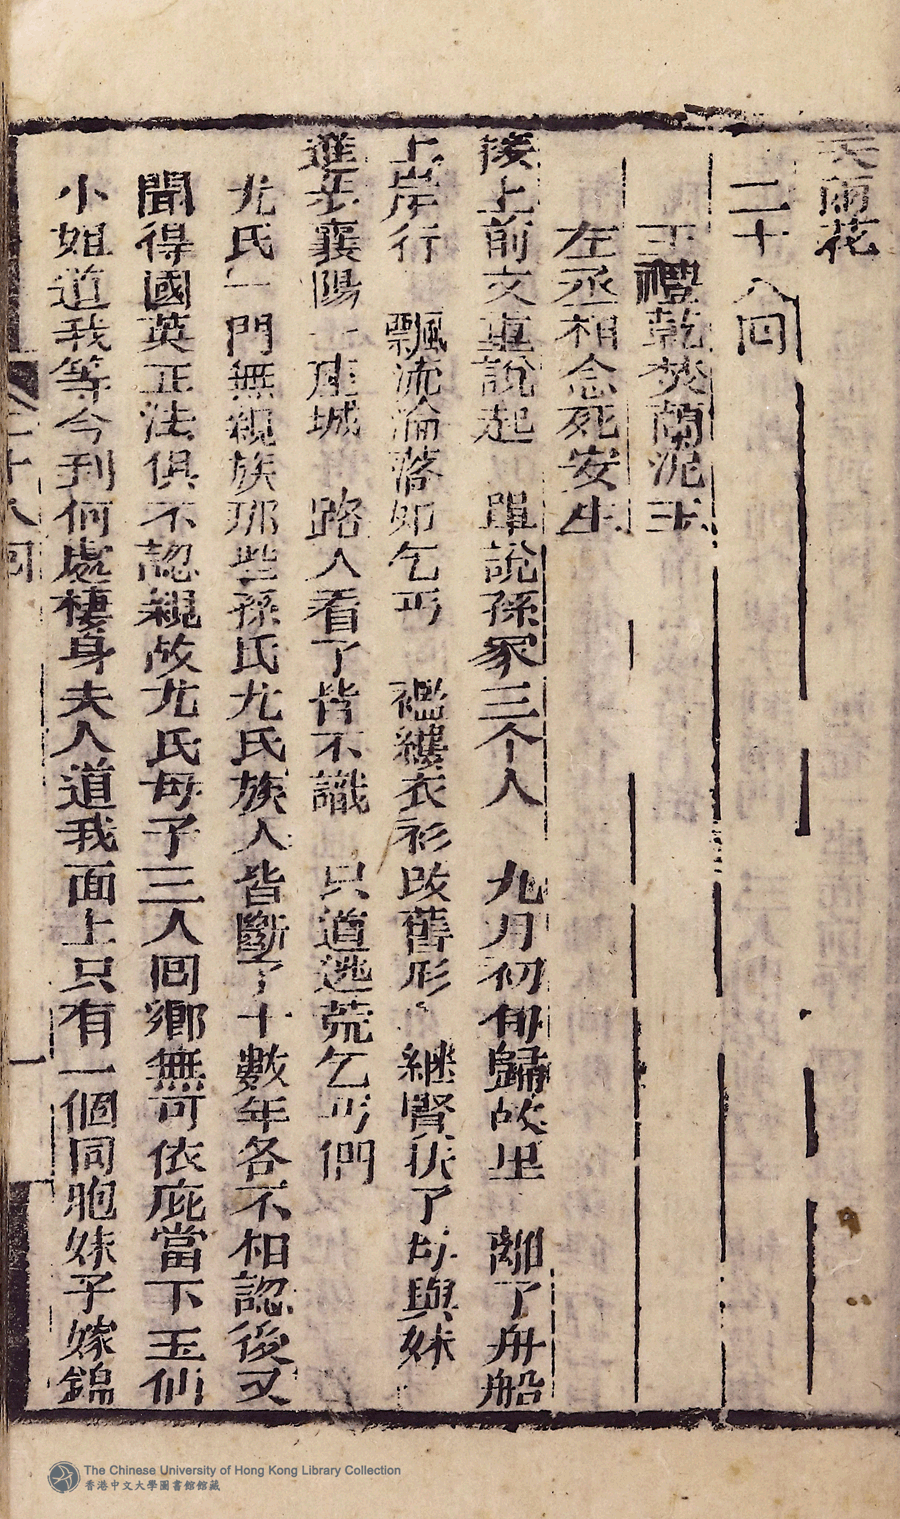 天雨花
二十八回
王禮乾焚蘭泥玉
左丞相念死安生
接上前文重說起　單說孫家三个人　九月初旬歸故里　離了舟船
上岸行　飄流淪落如乞丐　襤縷衣衫改舊形　継賢扶了母與妹
進至襄陽一座城　路人看了皆不識　只道逃荒乞丐們
尤氏一門無親族那些孫氏尤氏族人皆斷了十數年各不相認後又
聞得國英正法俱不認親故尤氏母子三人囘鄉無可依庇當下玉仙
小姐道我等今到何處棲身夫人道我面上只有一個同胞妹子嫁錦
二十八回
一
The Chinese University of Hong Kong Library Collection
香港中文大學圖書館館藏